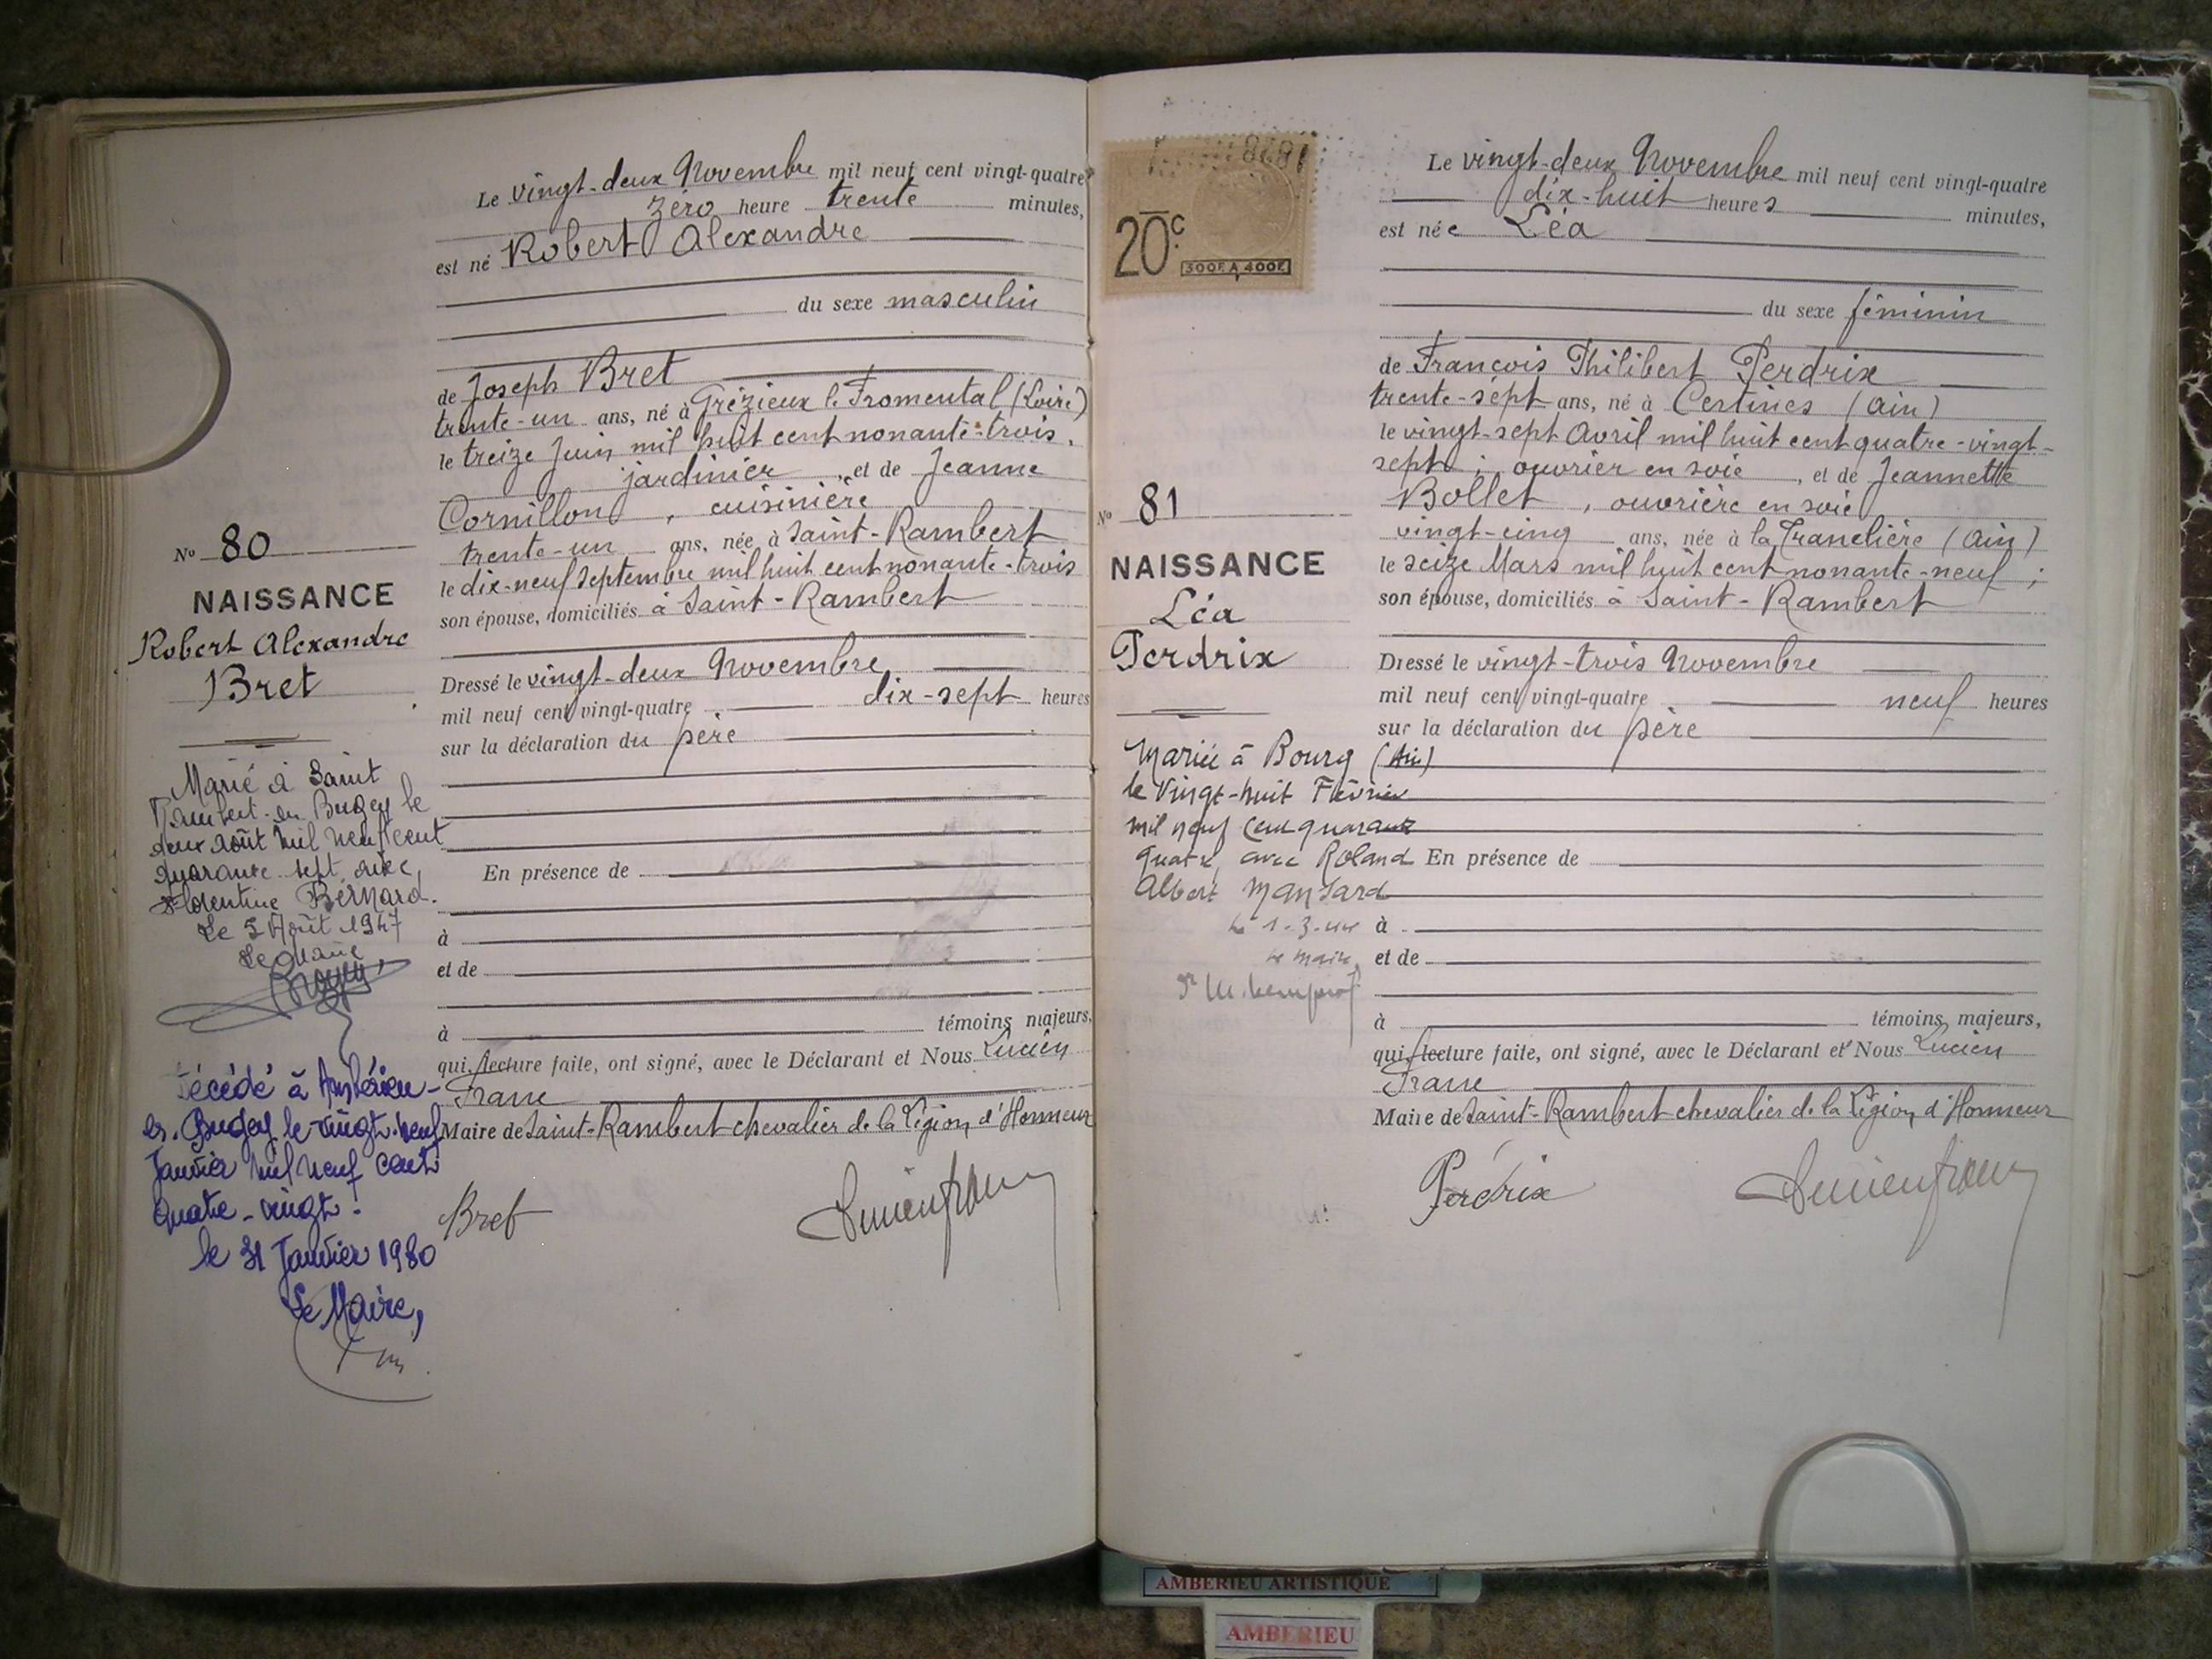 Le vingt-deux Novembre mil neuf cent vingt-quatre
zéro heure trente minutes,
est né Robert Alexandre
du sexe masculin
de Joseph Bret
trente-un ans, né à Grézieux le Fromental (Loire)
le treize Juin mil huit cent nonante-trois,
jardinier, et de Jeanne
Cornillon, cuisinière
trente-un ans, née à Saint-Rambert
le dix-neuf septembre mil huit cent nonante-trois
son épouse, domiciliés à Saint-Rambert
Dressé le vingt-deux Novembre
mil neuf cent vingt-quatre dix-sept heures
sur la déclaration du père
En présence de
à
et de
à témoins majeurs,
qui, lecture faite, ont signé, avec le Déclarant et Nous Lucien
Franc
Maire de Saint-Rambert chevalier de la Légion d'Honneur
Bret
Nº 80
NAISSANCE
Robert Alexandre
Bret
Marié à Saint
Rambert-en Bugey le
deux Août mil neuf cent
quarante sept avec
Florentine Bernard.
Le 5 Août 1947
Le Maire
Décédé à Ambérieu-
en-Bugey le vingt-neuf
Janvier mil neuf cent
quatre-vingt.
le 31 Janvier 1980
Le Maire,
20c
300F. A 400F.
Le vingt-deux Novembre mil neuf cent vingt-quatre
dix-huit heures minutes,
est née Léa
du sexe féminin
de François Philibert Perdrix
trente-sept ans, né à Certines (Ain)
le vingt-sept Avril mil huit cent quatre-vingt-
sept ; ouvrier en soie, et de Jeannette
Bollet, ouvrière en soie
vingt-cinq ans, née à la Tranclière (Ain)
le seize Mars mil huit cent nonante-neuf ;
son épouse, domiciliés à Saint-Rambert
Dressé le vingt-trois Novembre
mil neuf cent vingt-quatre neuf heures
sur la déclaration du père
En présence de
à
et de
à témoins majeurs,
qui, lecture faite, ont signé, avec le Déclarant et Nous Lucien
Franc
Maire de Saint-Rambert chevalier de la Légion d'Honneur
Perdrix
Nº 81
NAISSANCE
Léa
Perdrix
Mariée à Bourg (Ain)
le Vingt-huit Février
mil neuf cent quarante
quatre, avec Roland
Albert Mansard
le 1-3-44
Le Maire,
AMBERIEU ARTISTIQUE
AMBERIEU